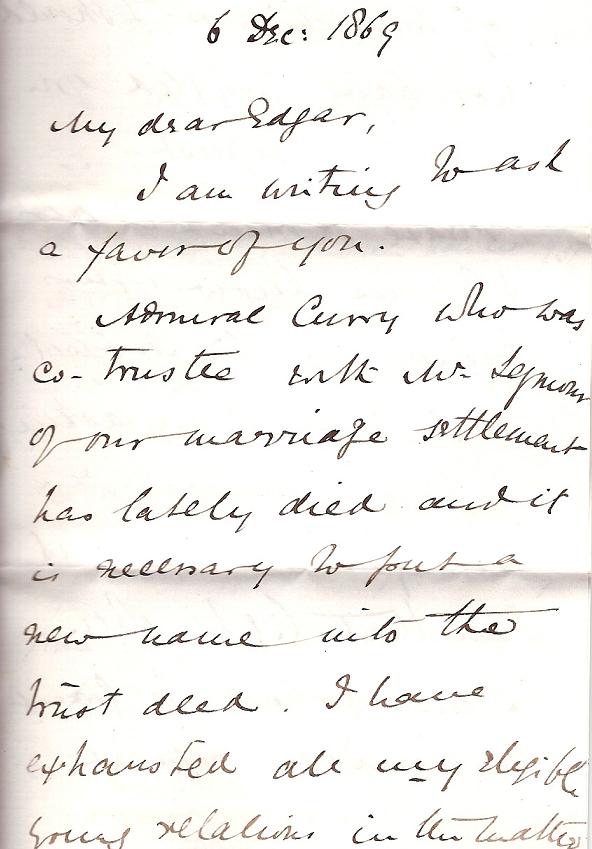 6 Dec: 1869
My dear Edgar,
I am writing to ask
a favor of you.
Admiral Curry who was
co-trustee with Mr. Seymour
of our marriage settlement
has lately died and it
is necessary to put a
new name into the
trust deed. I have
exhausted all my eligible
young relations in the matter